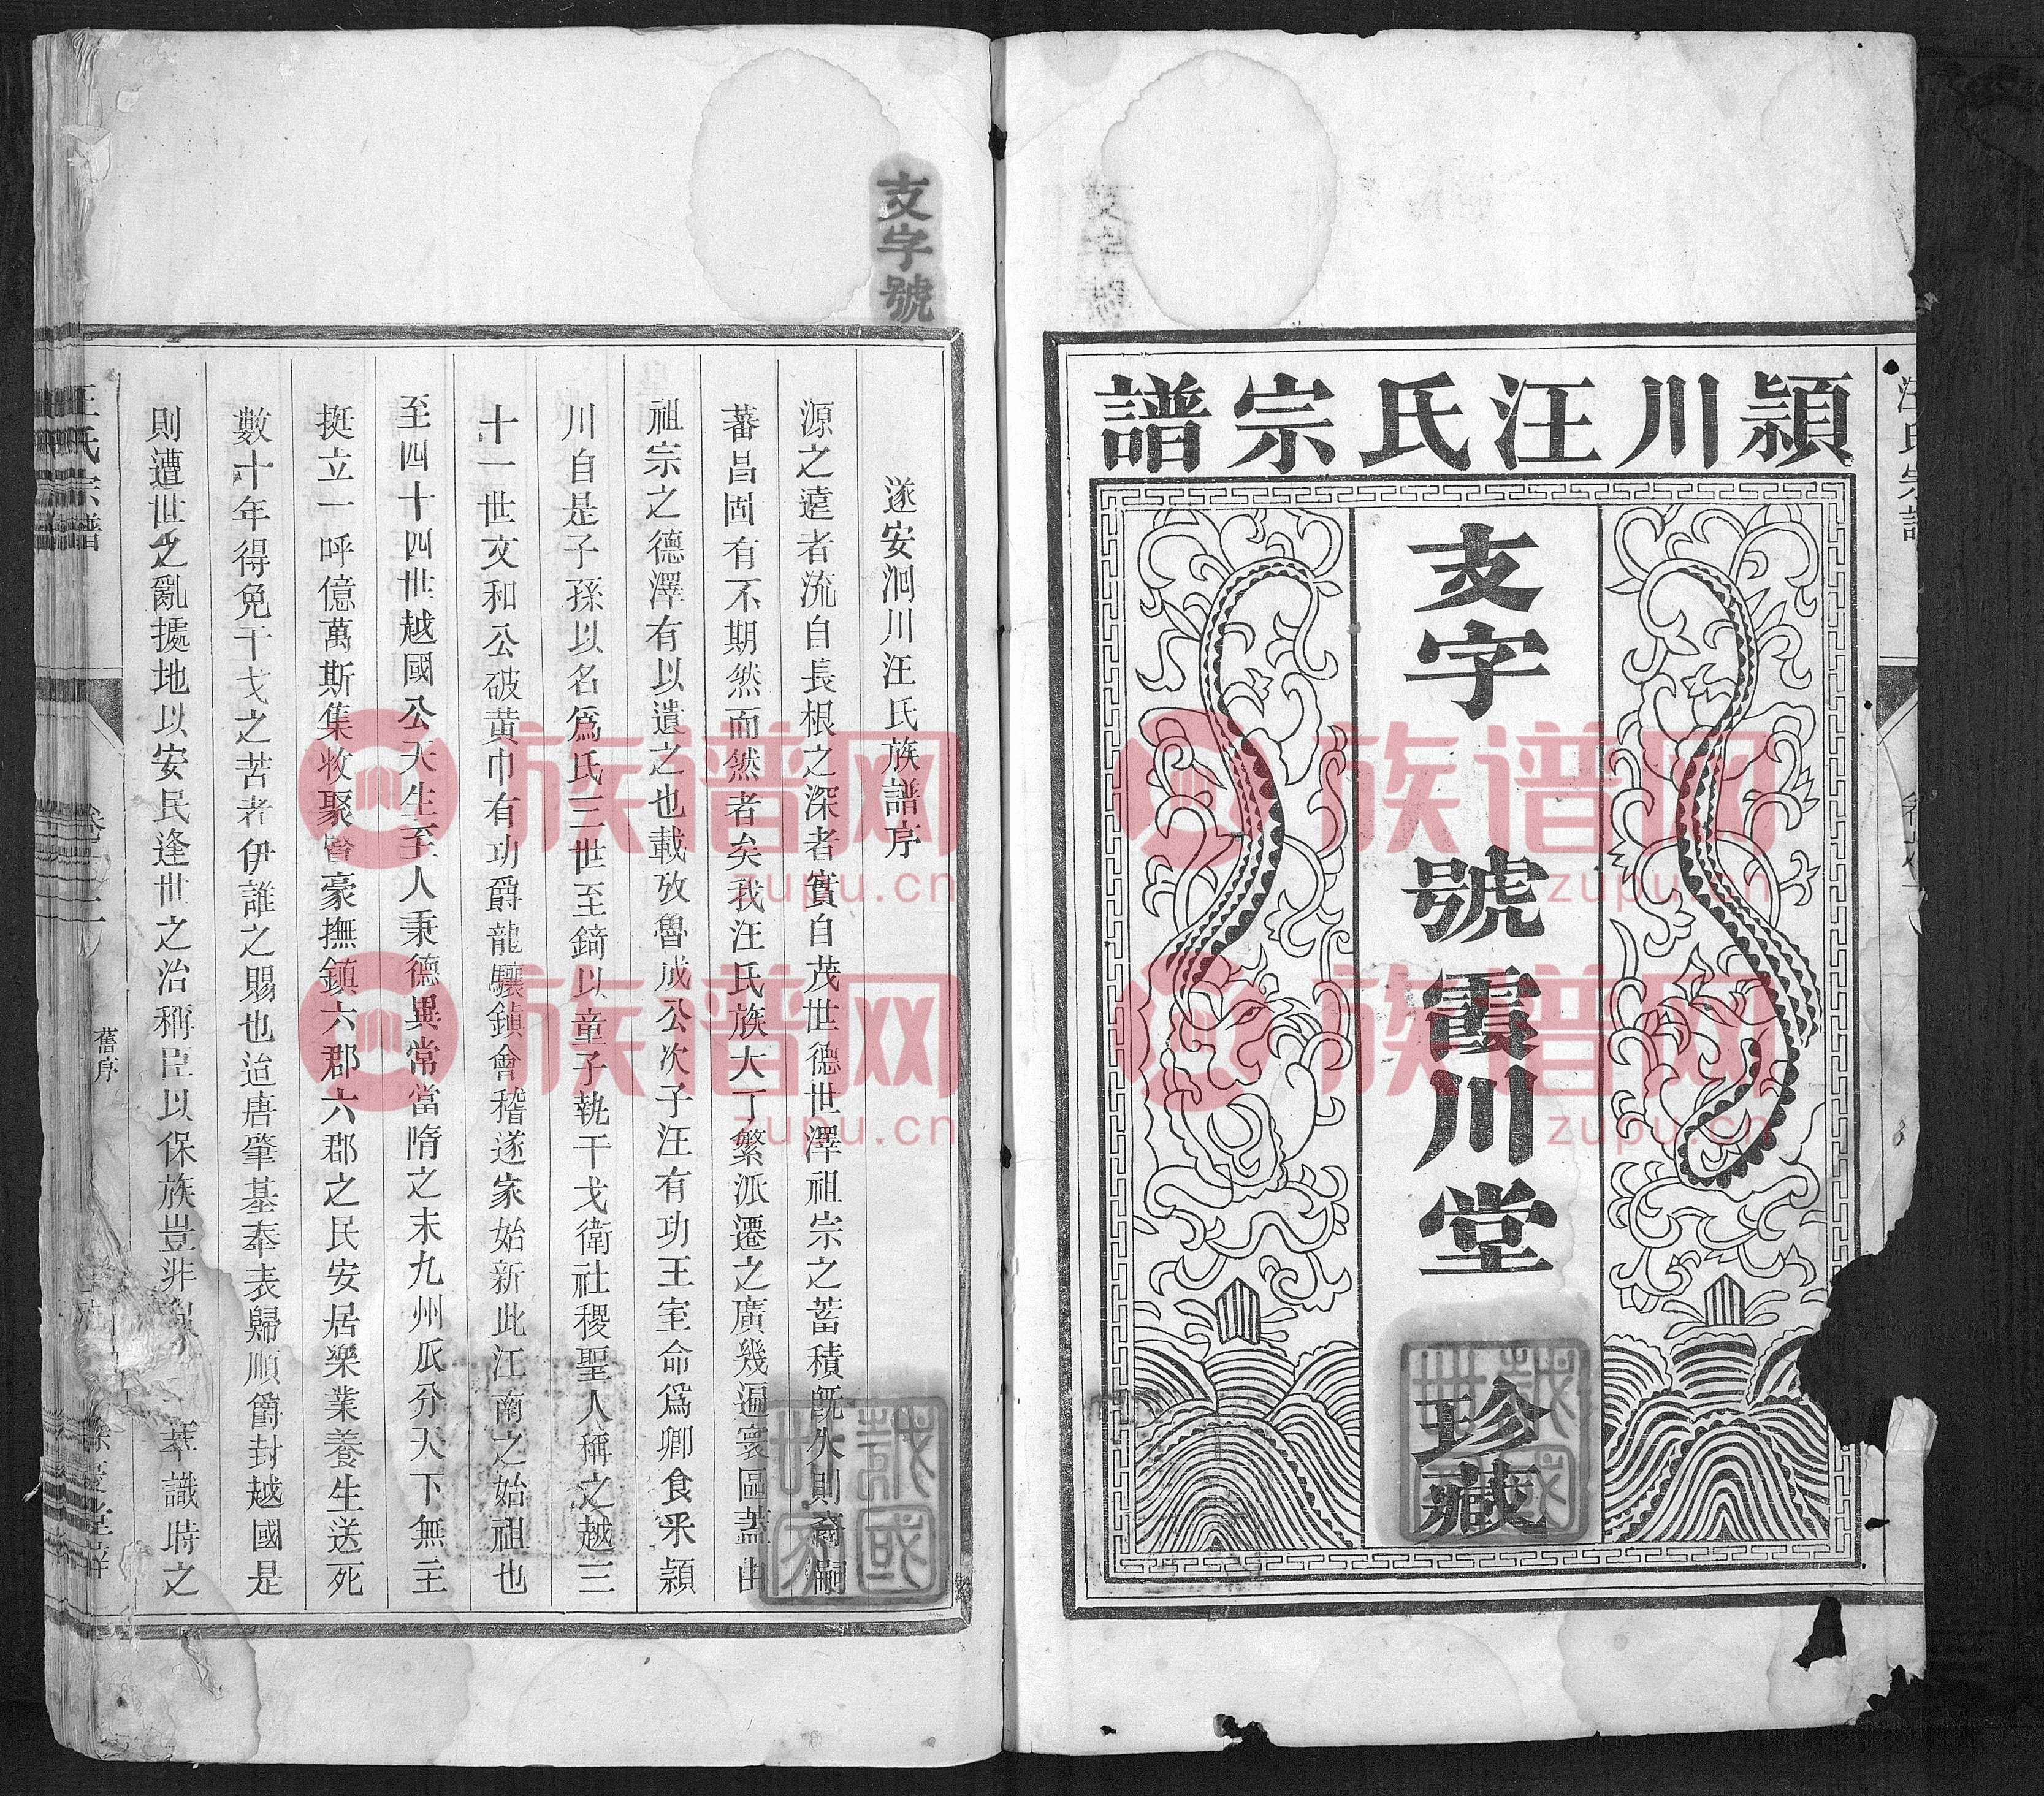 潁川汪氏宗譜
支字號霞川堂珍藏
越國世家
汪氏宗譜
支字號
遂安洄川汪氏族譜序
源之遠者流自長根之深者實自茂世德世澤祖宗之蓄積旣久則裔嗣
蕃昌固有不期然而然者矣我汪氏族大丁繁派遷之廣幾遍寰區蓋由
祖宗之德澤有以遺之也載攷魯成公次子汪有功王室命爲卿食采潁
川自是子孫以名爲氏三世至錡以童子執干戈衛社稷聖人稱之越三
十一世文和公破黃巾有功爵龍驤鎮會稽遂家始新此江南之始祖也
至四十四世越國公天生至人秉德異常當隋之末九州瓜分天下無主
挺立一呼億萬斯集收聚會豪撫鎮六郡六郡之民安居樂業養生送死
數十年得免干戈之苦者伊誰之賜也迨唐肇基奉表歸順爵封越國是
則遭世之亂據地以安民逢世之治稱臣以保族豈非萃識時之
汪氏宗譜
舊序
越國世家
族谱网
zupu.cn
族谱网
zupu.cn
族谱网
zupu.cn
族谱网
zupu.cn